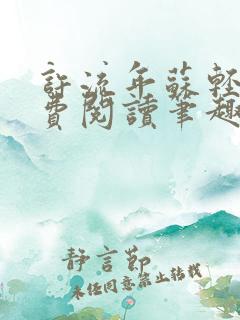 許流年蘇輕
費閱讀筆趣
靜言節
未经同意禁止转载